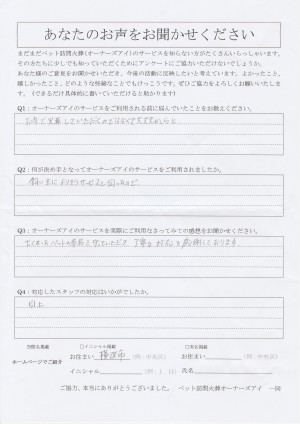 あなたのお声をお聞かせください
まだまだペット訪問火葬(オーナーズアイ)のサービスを知らない方がたくさんいらっしゃいます。
その方たちに少しでも知っていただくためにアンケートにご協力いただけないでしょうか。
あなた様のご意見をお聞かせいただき、今後の活動に反映したいと考えています。よかったこと、
嬉しかったこと、どのような些細なことでもけっこうです。ぜひご協力をよろしくお願いいたします。(できるだけ具体的に書いていただけると助かります)
Q1:オーナーズアイのサービスをご利用される前に悩んでいたことをお教えください。
Q2:何が決め手となってオーナーズアイのサービスをご利用されましたか。
Q3:オーナーズアイのサービスを実際にご利用なさってみての感想をお聞かせください。
丁寧な対応を感謝しております。
Q4:対応したスタッフの対応はいかがでしたか。
同上
匿名掲載 □イニシャル掲載 □実名掲載
ホームページでご紹介
お住まい 横浜市 (例:中央区) お住まい (例:中央区)
イニシャル (例:I.H) 氏名
ご協力、本当にありがとうございました。 ペット訪問火葬オーナーズアイ 一同